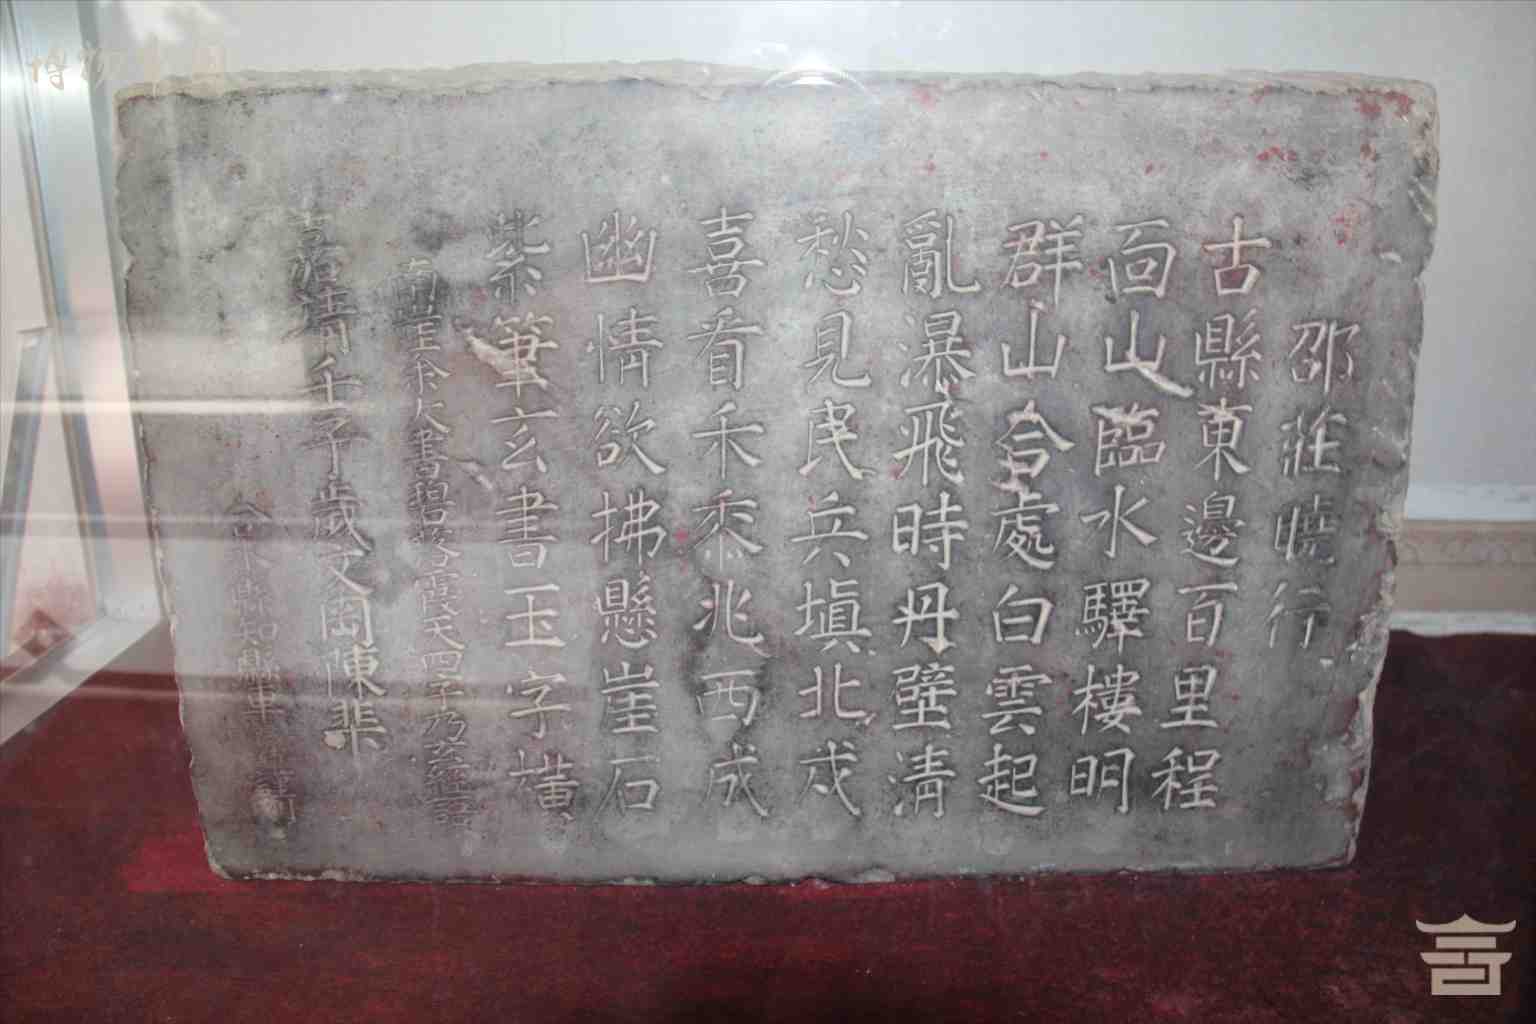 邵莊曉行
古縣東邊百里程
面山臨水驛樓明
群山合處白雲起
亂瀑飛時丹壁清
愁見民兵填北戍
喜看禾黍兆西成
幽情欲拂懸崖石
紫筆玄書玉字橫
南崖余大書碧落霞天四字乃菴經語
嘉靖壬子歲文岡陳棐
臨朐縣知縣